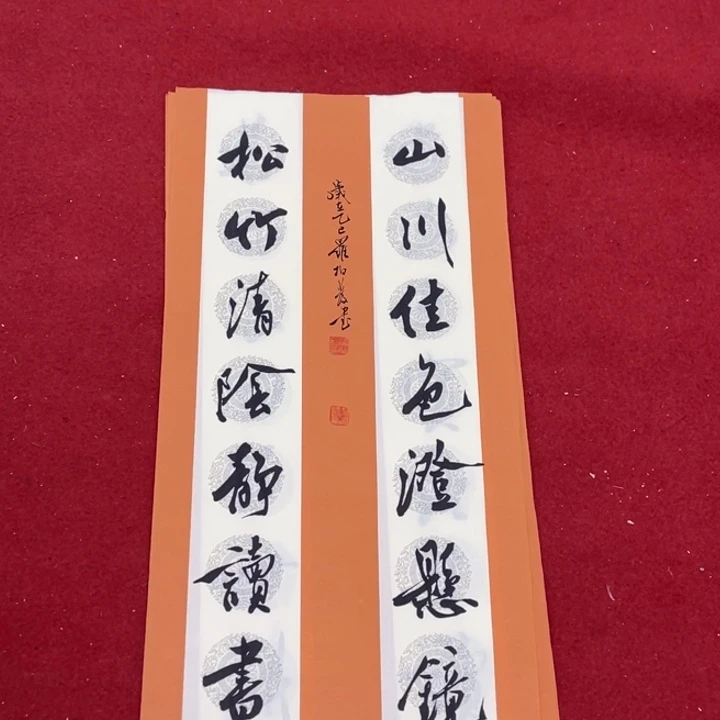 山川佳色澄懸鏡
松竹清陰靜讀書
歲在乙巳羅柏書